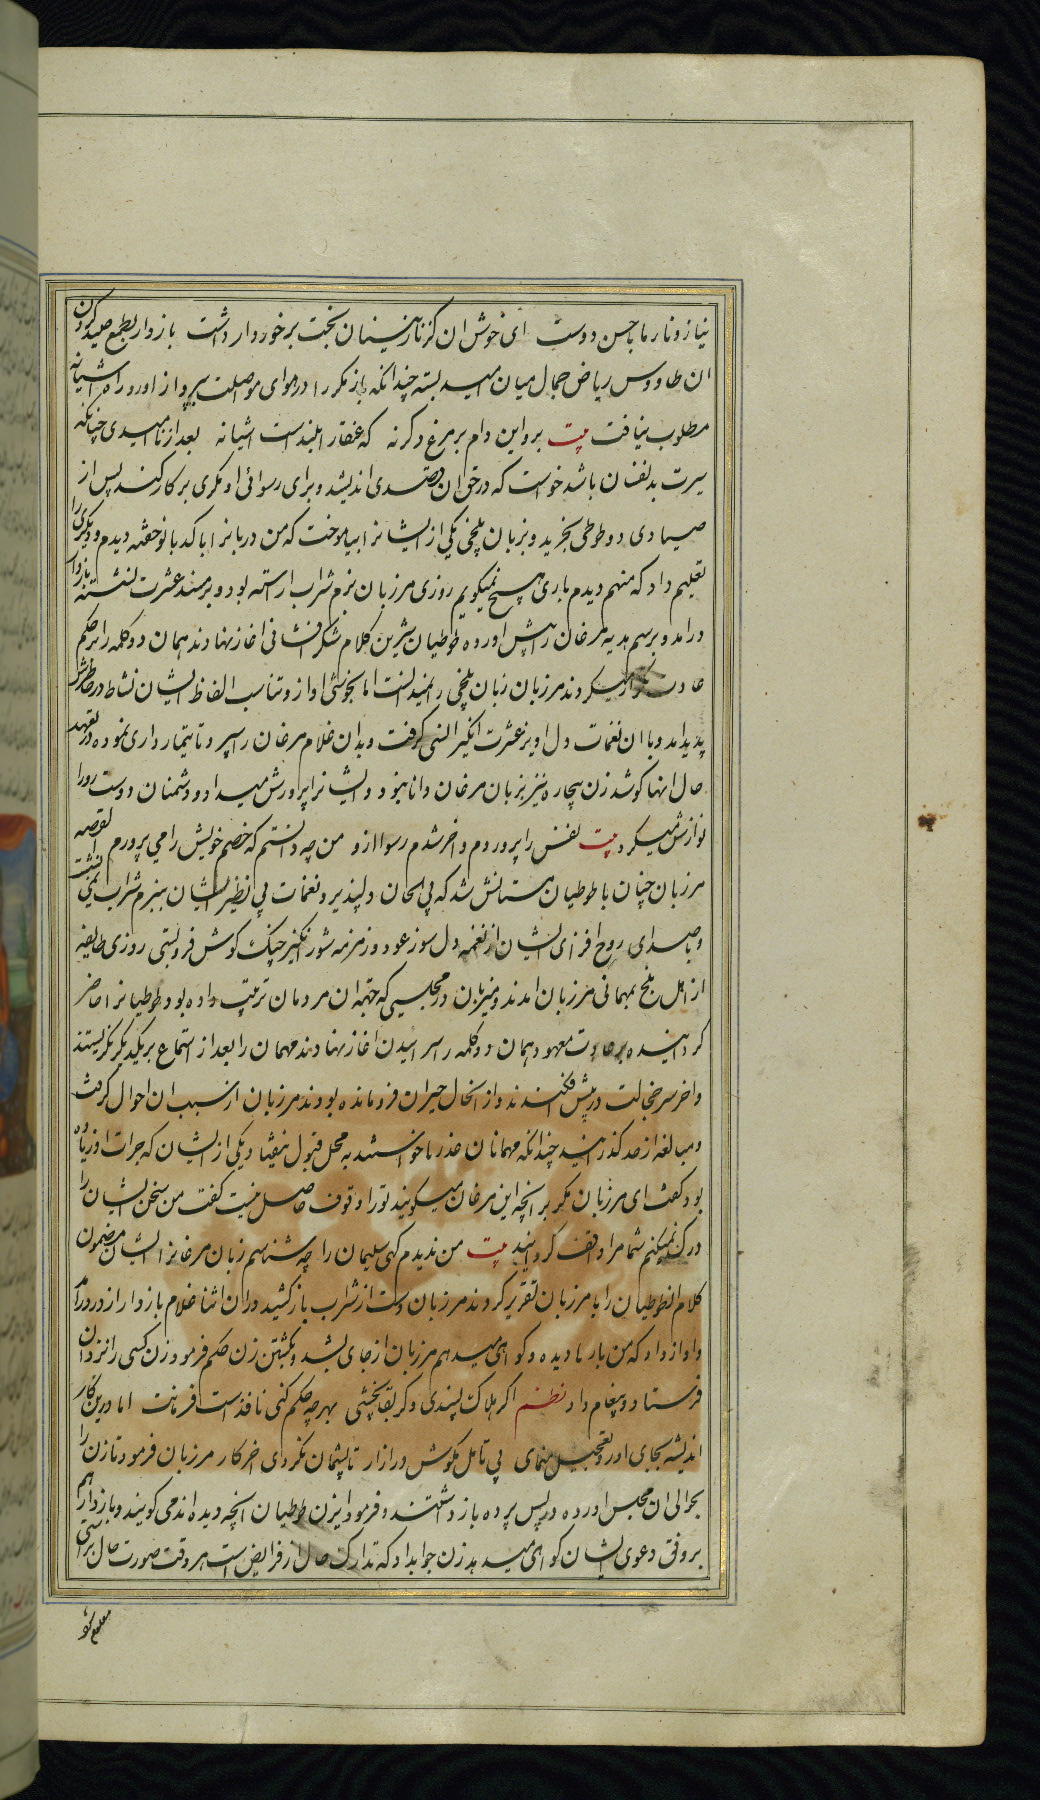 نیاز و ناز ما با حسن دوست ای خوش آن کز نازنینان بخت برخوردار داشت بازدار بطمع صید کردن
آن طاووس ریاض جمال میان امید بسته چندانکه باز مکر را در هوای مواصلت بپرواز آورد راه آشیانه
مطلوب نیافت بیت برو این دام بر مرغ دگر نه که عنقا را بلندست آشیانه بعد از ناامیدی چنانکه
سیرت بدنفسان باشد خواست که در حق آن قصدی اندیشد و برای رسوائی او مکری بر کار کند پس از
صیادی دو طوطی بخرید و بزبان بلخی یکی از ایشانرا بیاموخت که من دربانرا با کدبانو خفته دیدم و دیگری را
تعلیم داد که منهم دیدم باری هیچ نمیگویم روزی مرزبان بزم شراب آراسته بود و بر مسند عشرت نشسته بازدار
درآمد و برسم هدیه مرغان را پیش آورده طوطیان شیرین کلام شکرافشانی آغاز نهادند همان دو کلمه را بر حکم
عادت تکرار میکردند مرزبان زبان بلخی را نمیدانست اما بخوشی آواز و تناسب الفاظ ایشان نشاط در خاطرش
پدید آمد و با آن نغمات دل آویز عشرت انگیز انسی گرفت و بدان غلام مرغان را سپرد تا تیمارداری نموده در تعهد
حال آنها کوشد زن بیچاره نیز بزبان مرغان دانا نبود و ایشانرا پرورش میداد و دشمنان دوست رو را
نوازش میکرد بیت نفس را پروردم و آخر شدم رسوا ازو من چه دانستم که خصم خویش را می پرورم القصه
مرزبان چنان با طوطیان مستانس شد که بی الحان دلپذیر و نغمات بی نظیر ایشان ببزم شراب نمی نشست
و بصدای روح افزای ایشان از نغمه دل سوز عود و زمزمه شورانگیز چنگ گوش فروبستی روزی طایفه
از اهل بلخ بمهمانی مرزبان آمدند و میزبان در مجلسی که جهة آن مردمان ترتیب داده بود طوطیانرا حاضر
گردانیده بر عادت معهود همان دو کلمه را سرائیدن آغاز نهادند مهمانان را بعد از استماع بر یکدیگر نگریستند
و آخر سر خجالت در پیش افکندند و از آنحال حیران فرومانده بودند مرزبان از سبب آن احوال گرفت
و مبالغه از حد گذرانید چندانکه مهمانان عذر ها خواستند به محل قبول نیفتاد یکی از ایشان که جرات او زیاده
بود گفت ای مرزبان مگر بر آنچه این مرغان میگویند تو را وقوف حاصل نیست گفت من سخن ایشان را
درک نمیکنم شما مرا واقف گردانید بیت من ندیدم گهی سلیمان را چه شناسم زبان مرغانرا ایشان مضمون
کلام آن طوطیان را با مرزبان تقریر کردند مرزبان دست از شراب باز کشید در آن اثنا غلام بازدار از در درآمد
و آواز داد که من بارها دیده و گواهی میدهم مرزبان از جای بشد و بکشتن زن حکم فرمود زن کسی را نزد آن
فرستاد و پیغام داد نظم اگر هلاک پسندی و گر بقا بخشی بهر چه حکم کنی نافذست فرمانت اما درین کار
اندیشه بجای آور و تعجیل منمای بی تامل مکوش در آزار تا پشیمان نگردی آخر کار مرزبان فرمود تا زن را
بحوالی آن مجلس آورده در پس پرده بازداشتند و فرمود ای زن طوطیان آنچه دیده اند می گویند و بازدار هم
بر وفق دعوی ایشان گواهی میدهد زن جواب داد که تدارک حال از فرایض است هر وقت صورت حال براستی
معلوم شود